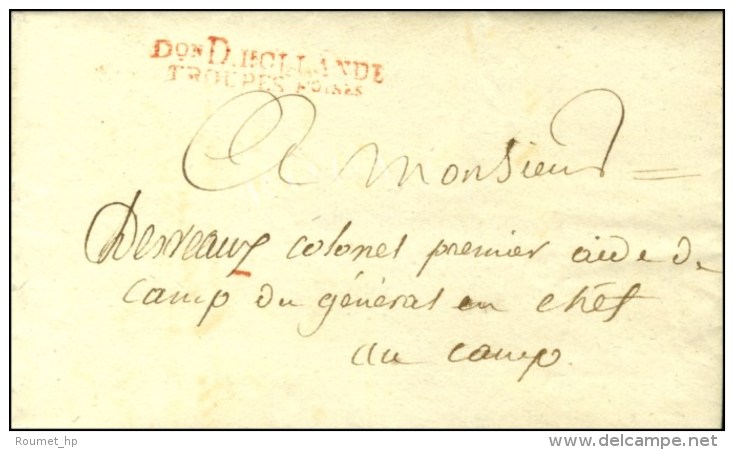 DON D. HOLLANDE
TROUPES F'OISES
A Monsieur
Desveaux colonel premier aide de
camp du général en chef
au camp.
Roumet_hp
delcampe.net